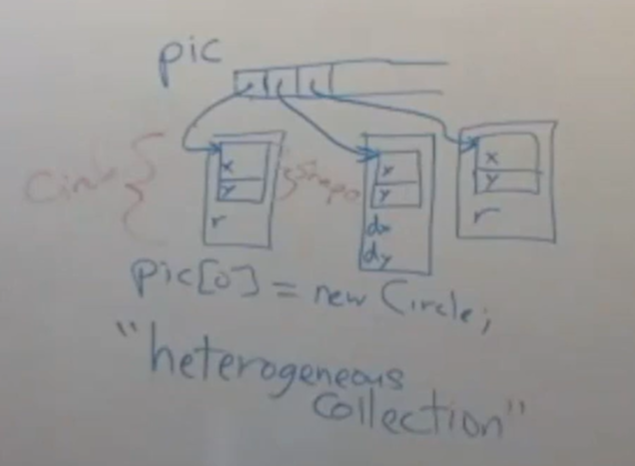 pic
x
y
r
x
y
dx
dy
x
y
r
pic[0] = new Circle;
"heterogeneous
collection"